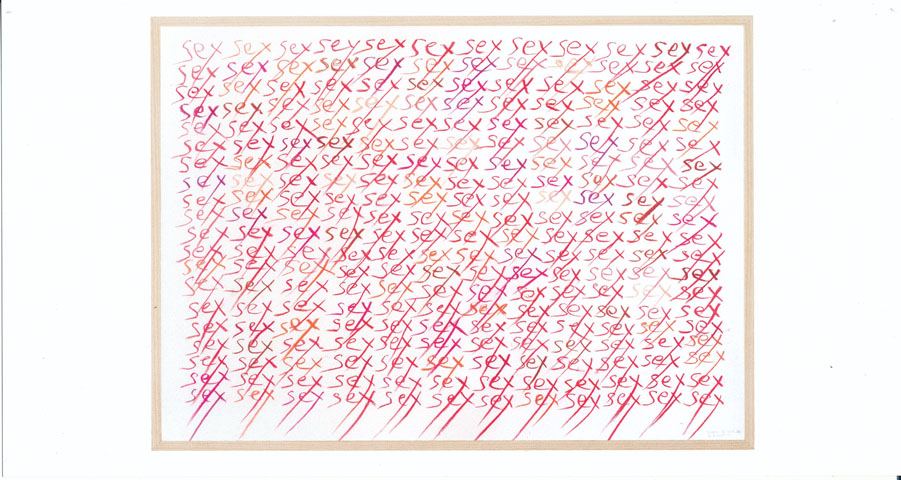 sex sex sex sex sex sex sex sex sex sex sex sex
sex sex sex sex sex sex sex sex sex sex sex sex
sex sex sex sex sex sex sex sex sex sex sex sex
sex sex sex sex sex sex sex sex sex sex sex sex
sex sex sex sex sex sex sex sex sex sex sex sex
sex sex sex sex sex sex sex sex sex sex sex sex
sex sex sex sex sex sex sex sex sex sex sex sex
sex sex sex sex sex sex sex sex sex sex sex sex
sex sex sex sex sex sex sex sex sex sex sex sex
sex sex sex sex sex sex sex sex sex sex sex sex
sex sex sex sex sex sex sex sex sex sex sex sex
sex sex sex sex sex sex sex sex sex sex sex sex
sex sex sex sex sex sex sex sex sex sex sex sex
sex sex sex sex sex sex sex sex sex sex sex sex
sex sex sex sex sex sex sex sex sex sex sex sex
sex sex sex sex sex sex sex sex sex sex sex sex
sex sex sex sex sex sex sex sex sex sex sex sex
sex sex sex sex sex sex sex sex sex sex sex sex
sex sex sex sex sex sex sex sex sex sex sex sex
sex sex sex sex sex sex sex sex sex sex sex sex